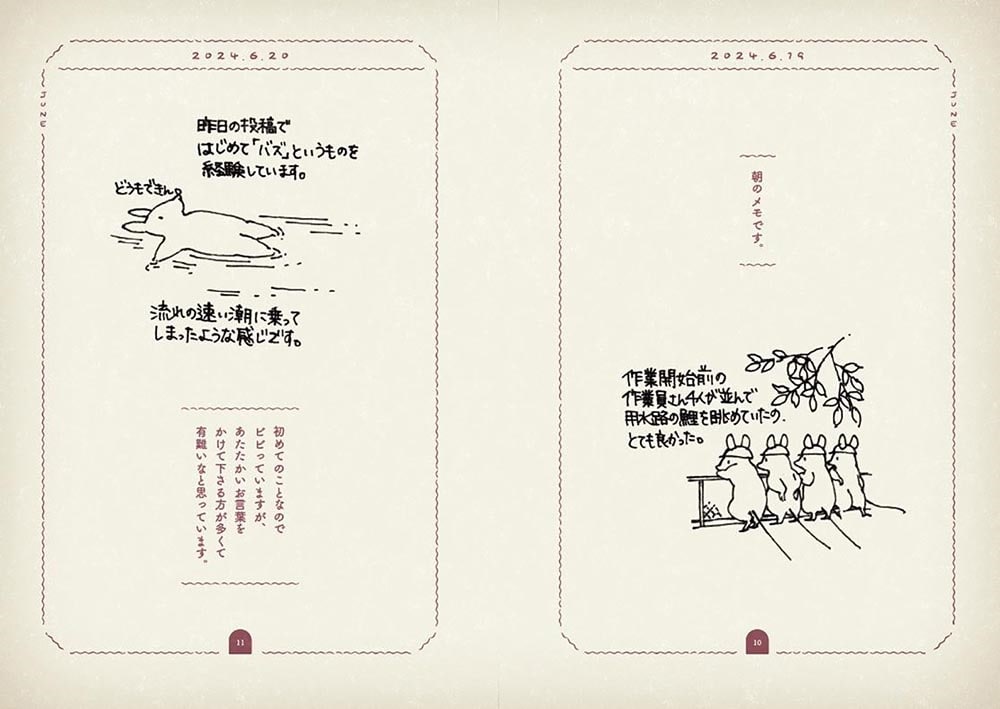 2024.6.19
JUNE
朝のメモです。
作業開始前の
作業員さん4人が並んで
用水路の鯉を眺めていたの、
とても良かった。
10
2024.6.20
JUNE
昨日の投稿で
はじめて「バズ」というものを
経験しています。
どうもできん。
流れの速い潮に乗って
しまったような感じです。
初めてのことなので
ビビっていますが、
あたたかいお言葉を
かけて下さる方が多くて
有難いなと思っています。
11